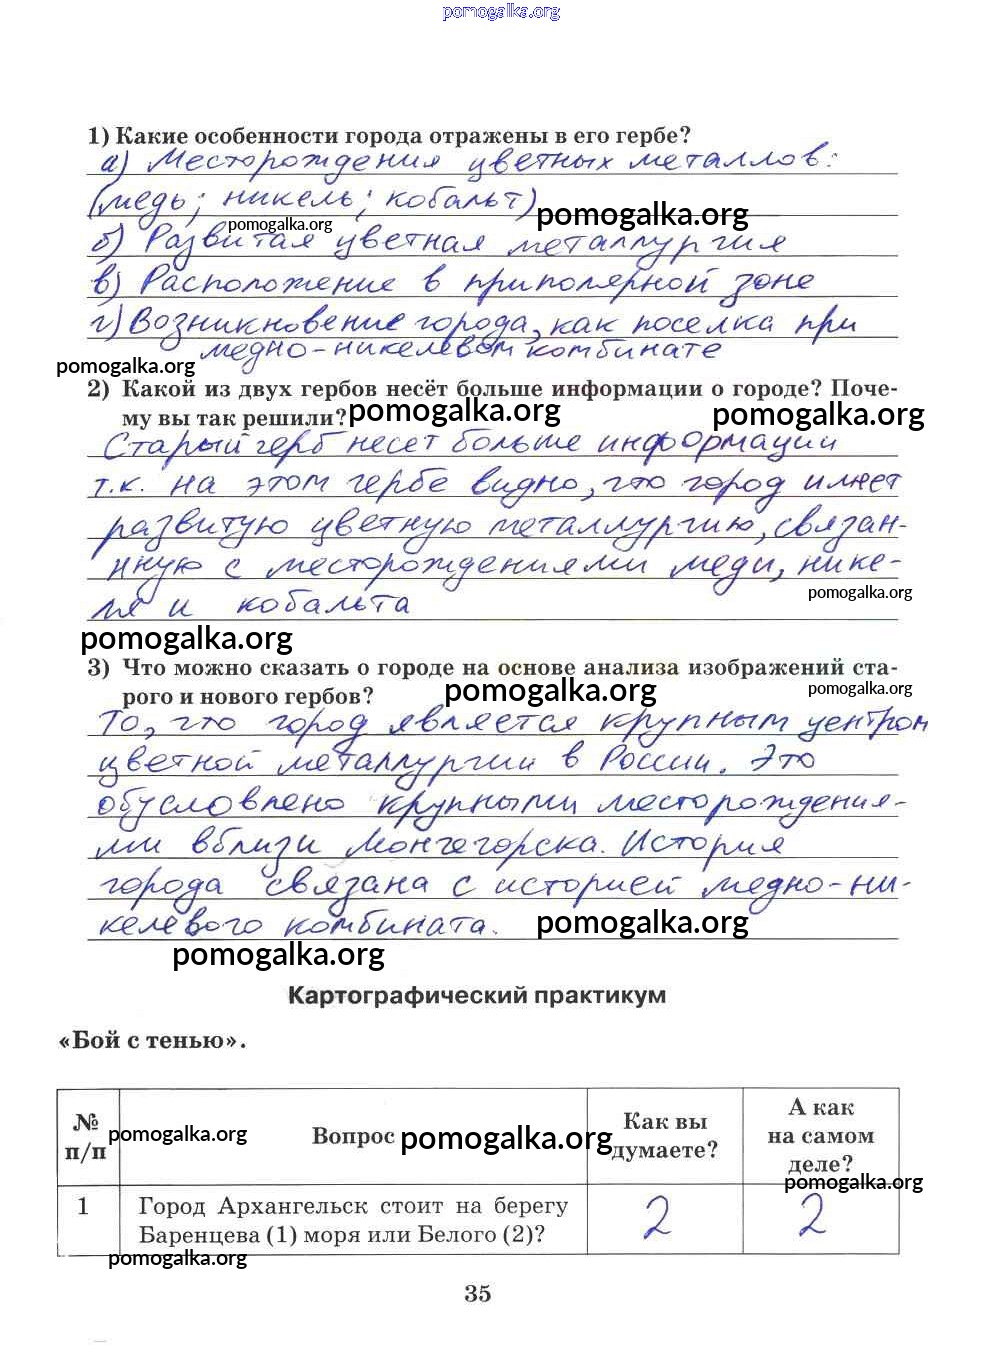 pomogalka.org
1) Какие особенности города отражены в его гербе?
а) Месторождения цветных металлов:
(медь; никель; кобальт)
pomogalka.org pomogalka.org
б) Развитая цветная металлургия
в) Расположение в приполярной зоне
г) Возникновение города, как поселка при
медно-никелевом комбинате
pomogalka.org
2) Какой из двух гербов несёт больше информации о городе? Поче-
му вы так решили? pomogalka.org pomogalka.org
Старый герб несет больше информации
т.к. на этом гербе видно, что город имеет
развитую цветную металлургию, связан-
нную с месторождениями меди, нике-
ля и кобальта pomogalka.org
pomogalka.org
3) Что можно сказать о городе на основе анализа изображений ста-
рого и нового гербов? pomogalka.org pomogalka.org
То, что город является крупным центром
цветной металлургии в России. Это
обусловлено крупными месторождения-
ми вблизи Мончегорска. История
города связана с историей медно-ни-
келевого комбината. pomogalka.org
pomogalka.org
Картографический практикум
«Бой с тенью».
№ п/п Вопрос Как вы думаете? А как на самом деле?
pomogalka.org pomogalka.org pomogalka.org
1 Город Архангельск стоит на берегу 2 2
Баренцева (1) моря или Белого (2)?
pomogalka.org
35